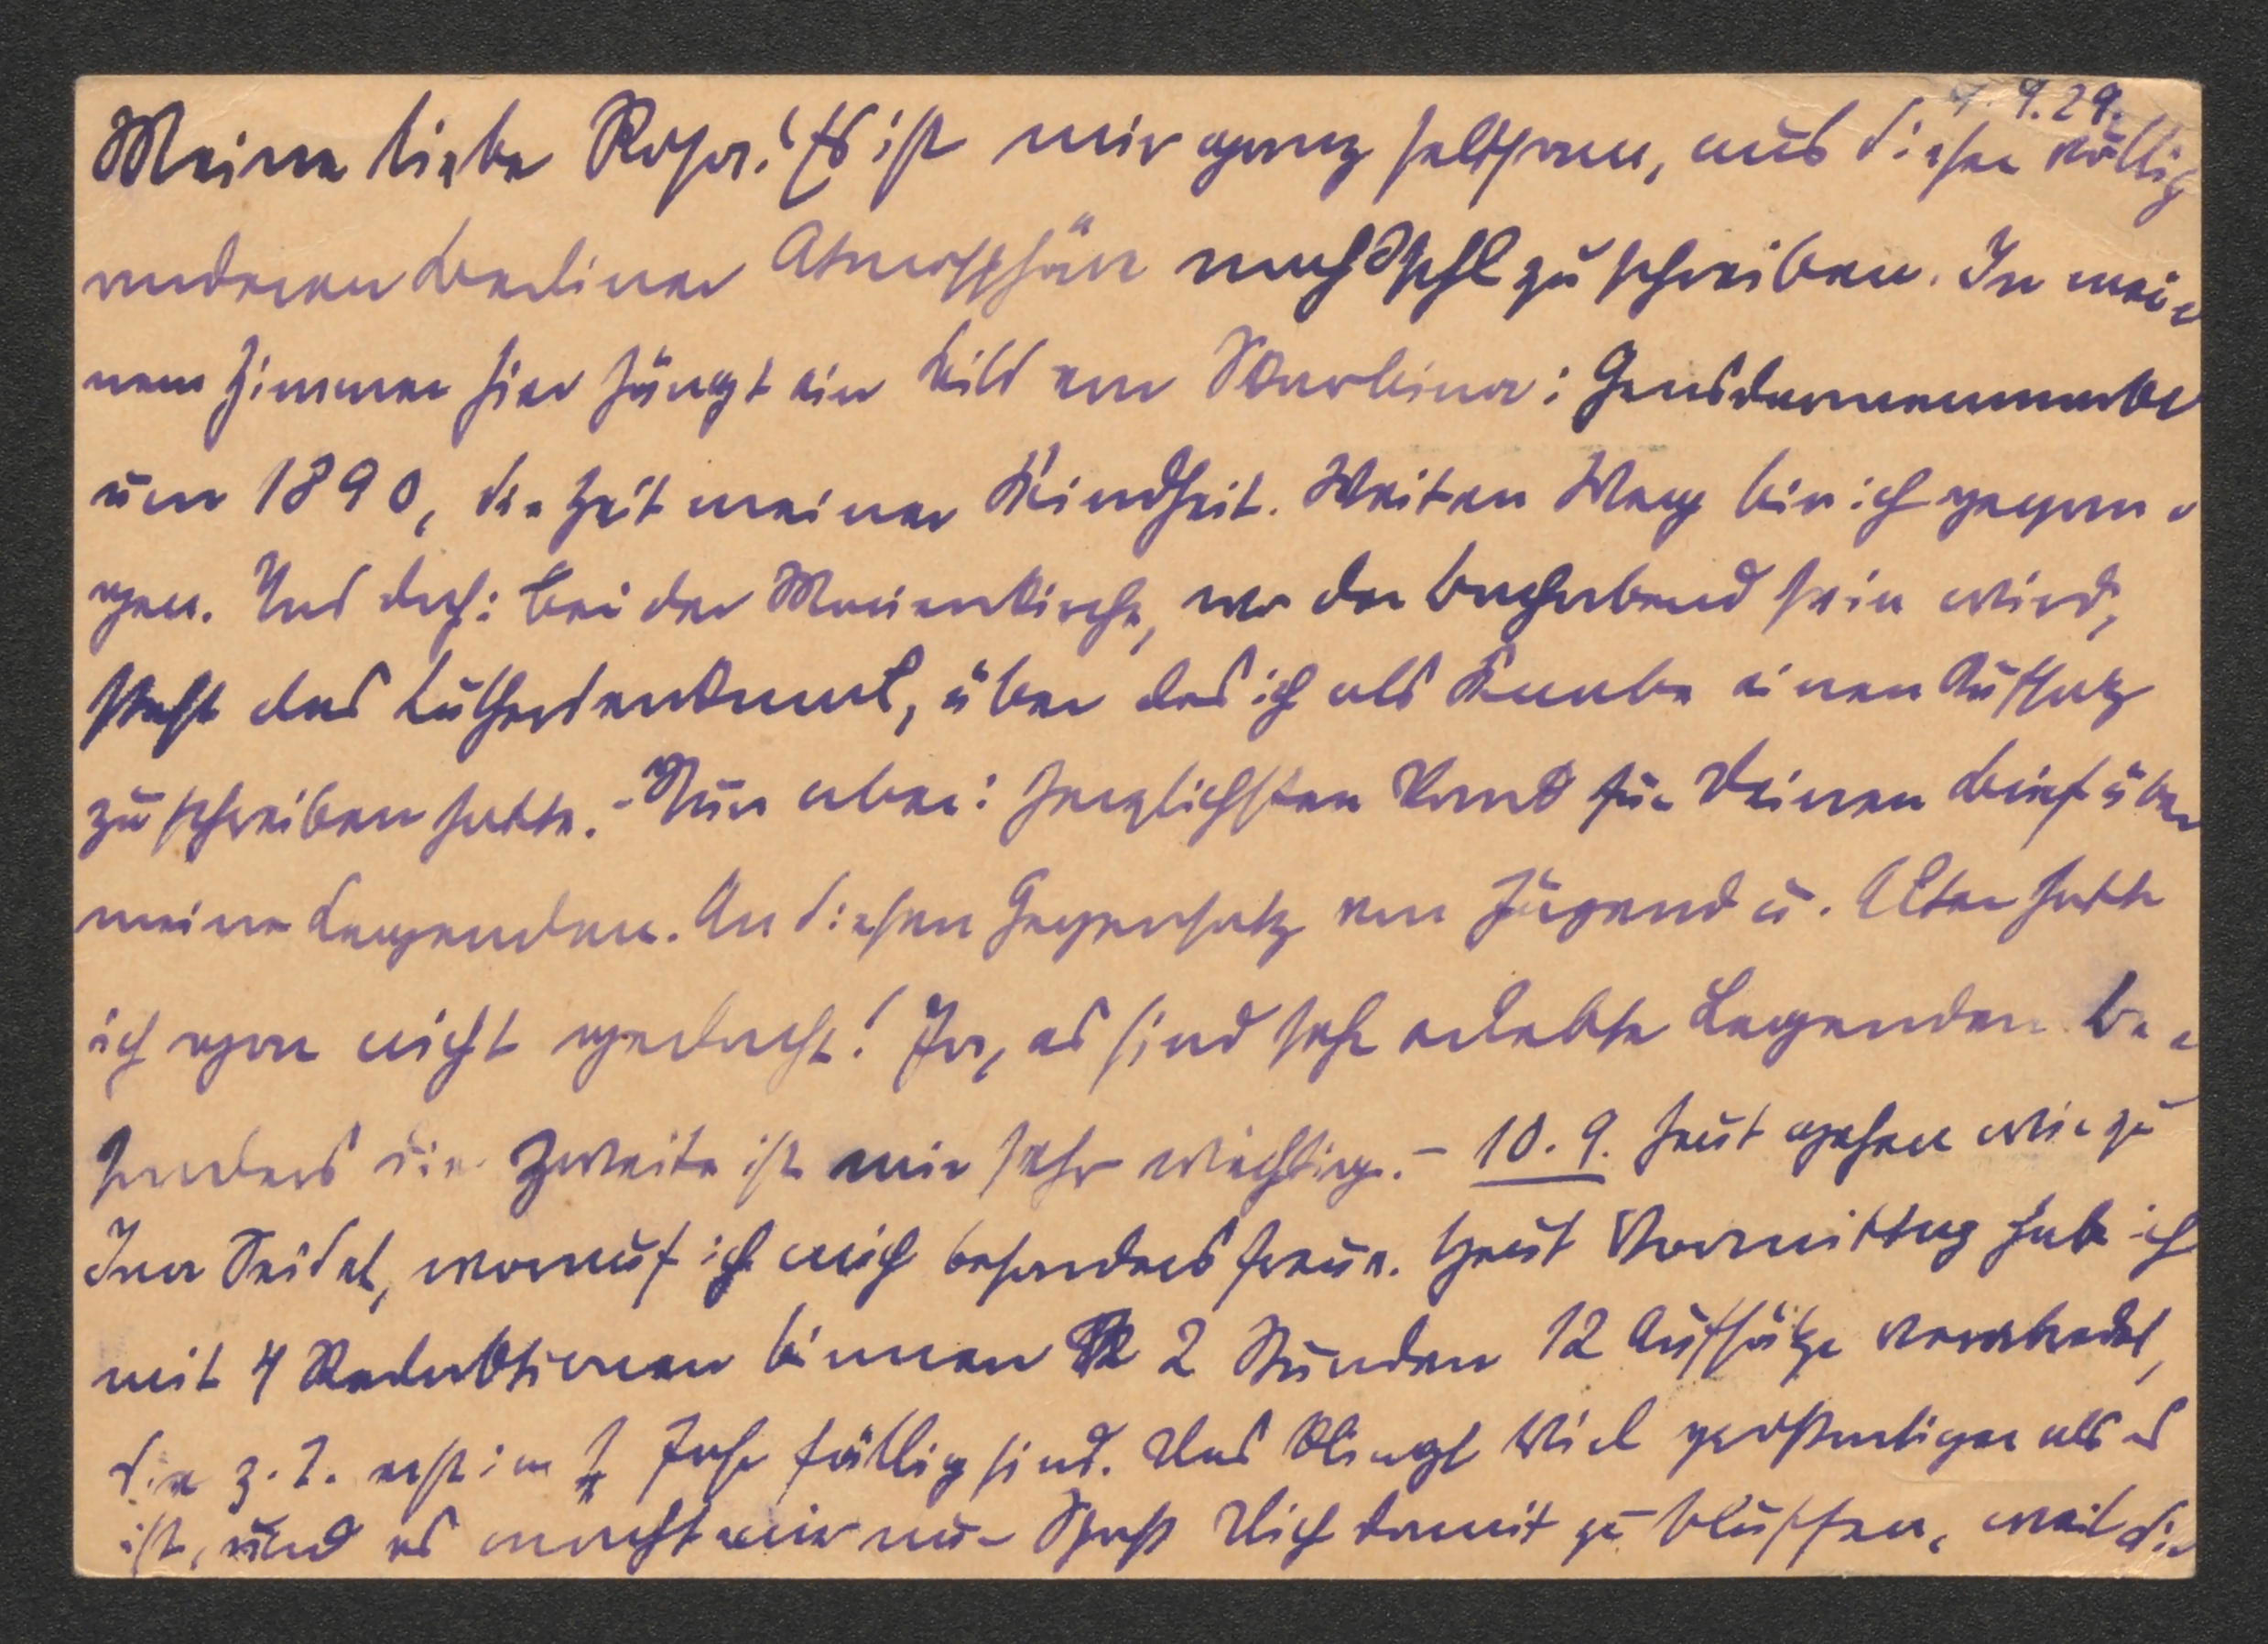 9.29.
Meine liebe Rosa! Es ist mir ganz seltsam, aus dieser völlig
anderen Berliner Atmosphäre nach zu schreiben. In mei-
nem Zimmer hier hängt ein Bild von Skarbina: Gensdarmenmarkt
um 1890, die Zeit meiner Kindheit. Weiten Weg bin ich gegan-
gen. Und doch: bei der Marienkirche, wo der Vortragsabend sein wird,
steht das Lutherdenkmal, über das ich als Knabe einen Aufsatz
zu schreiben hatte. - Nun aber: herzlichsten Dank für Deinen Brief über
meine Legenden. An diesen Gegensatz von Jugend u. Alter hatte
ich gar nicht gedacht! Ja, es sind sehr erlebte Legenden be-
sonders die zweite ist mir sehr wichtig. - 10. 9. Heut gehen wir zu
Ina Seidel, worauf ich mich besonders freue. Heut Vormittag hab ich
mit 4 Redaktionen binnen 2 Stunden 12 Aufsätze verabredet,
die z. T. erst im Jahr fällig sind. Das klingt viel großartiger als es
ist, und es macht mir nur Spaß Dich damit zu bluffen, weil die